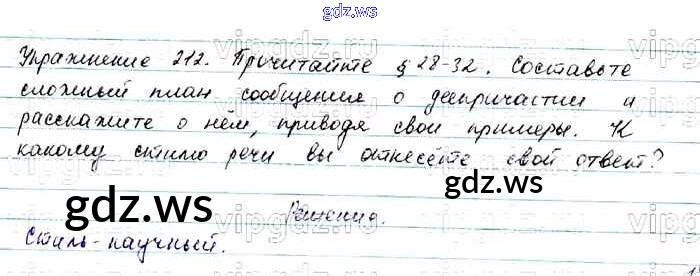 gdz.ws
Упражнение 212. Прочитайте § 28-32. Составьте
сложный план сообщения о деепричастии и
расскажите о нём, приводя свои примеры. К
какому стилю речи вы отнесёте свой ответ?
gdz.ws
gdz.ws
Решение.
Стиль-научный.
gdz.ws